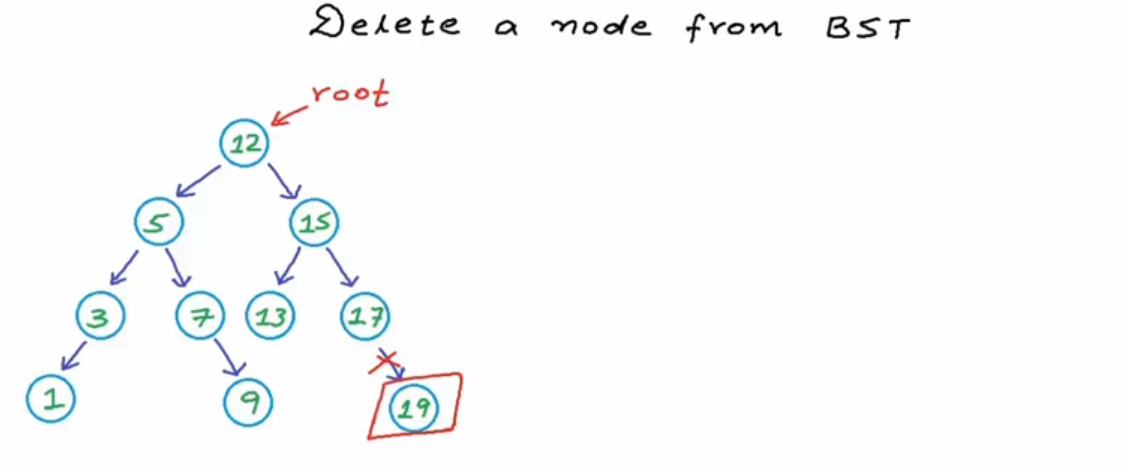 Delete a node from BST
root
12
5 15
3 7 13 17
1 9 19